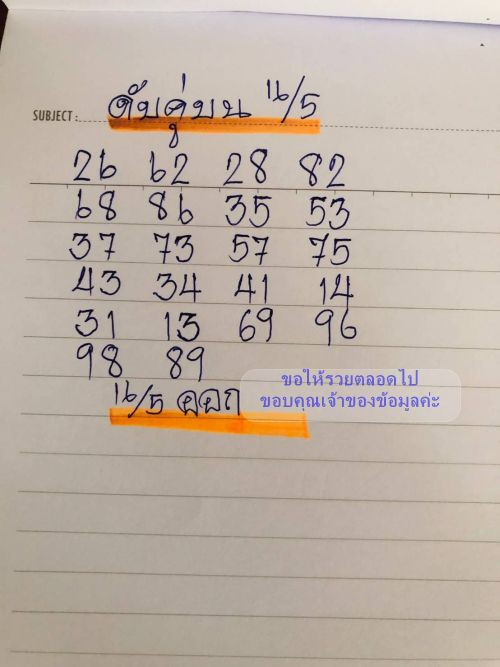 SUBJECT :
ดับคู่บน 16/5
26 62 28 82
68 86 35 53
37 73 57 75
43 34 41 14
31 13 69 96
98 89
16/5 ออก
ขอให้รวยตลอดไป
ขอบคุณเจ้าของข้อมูลค่ะ